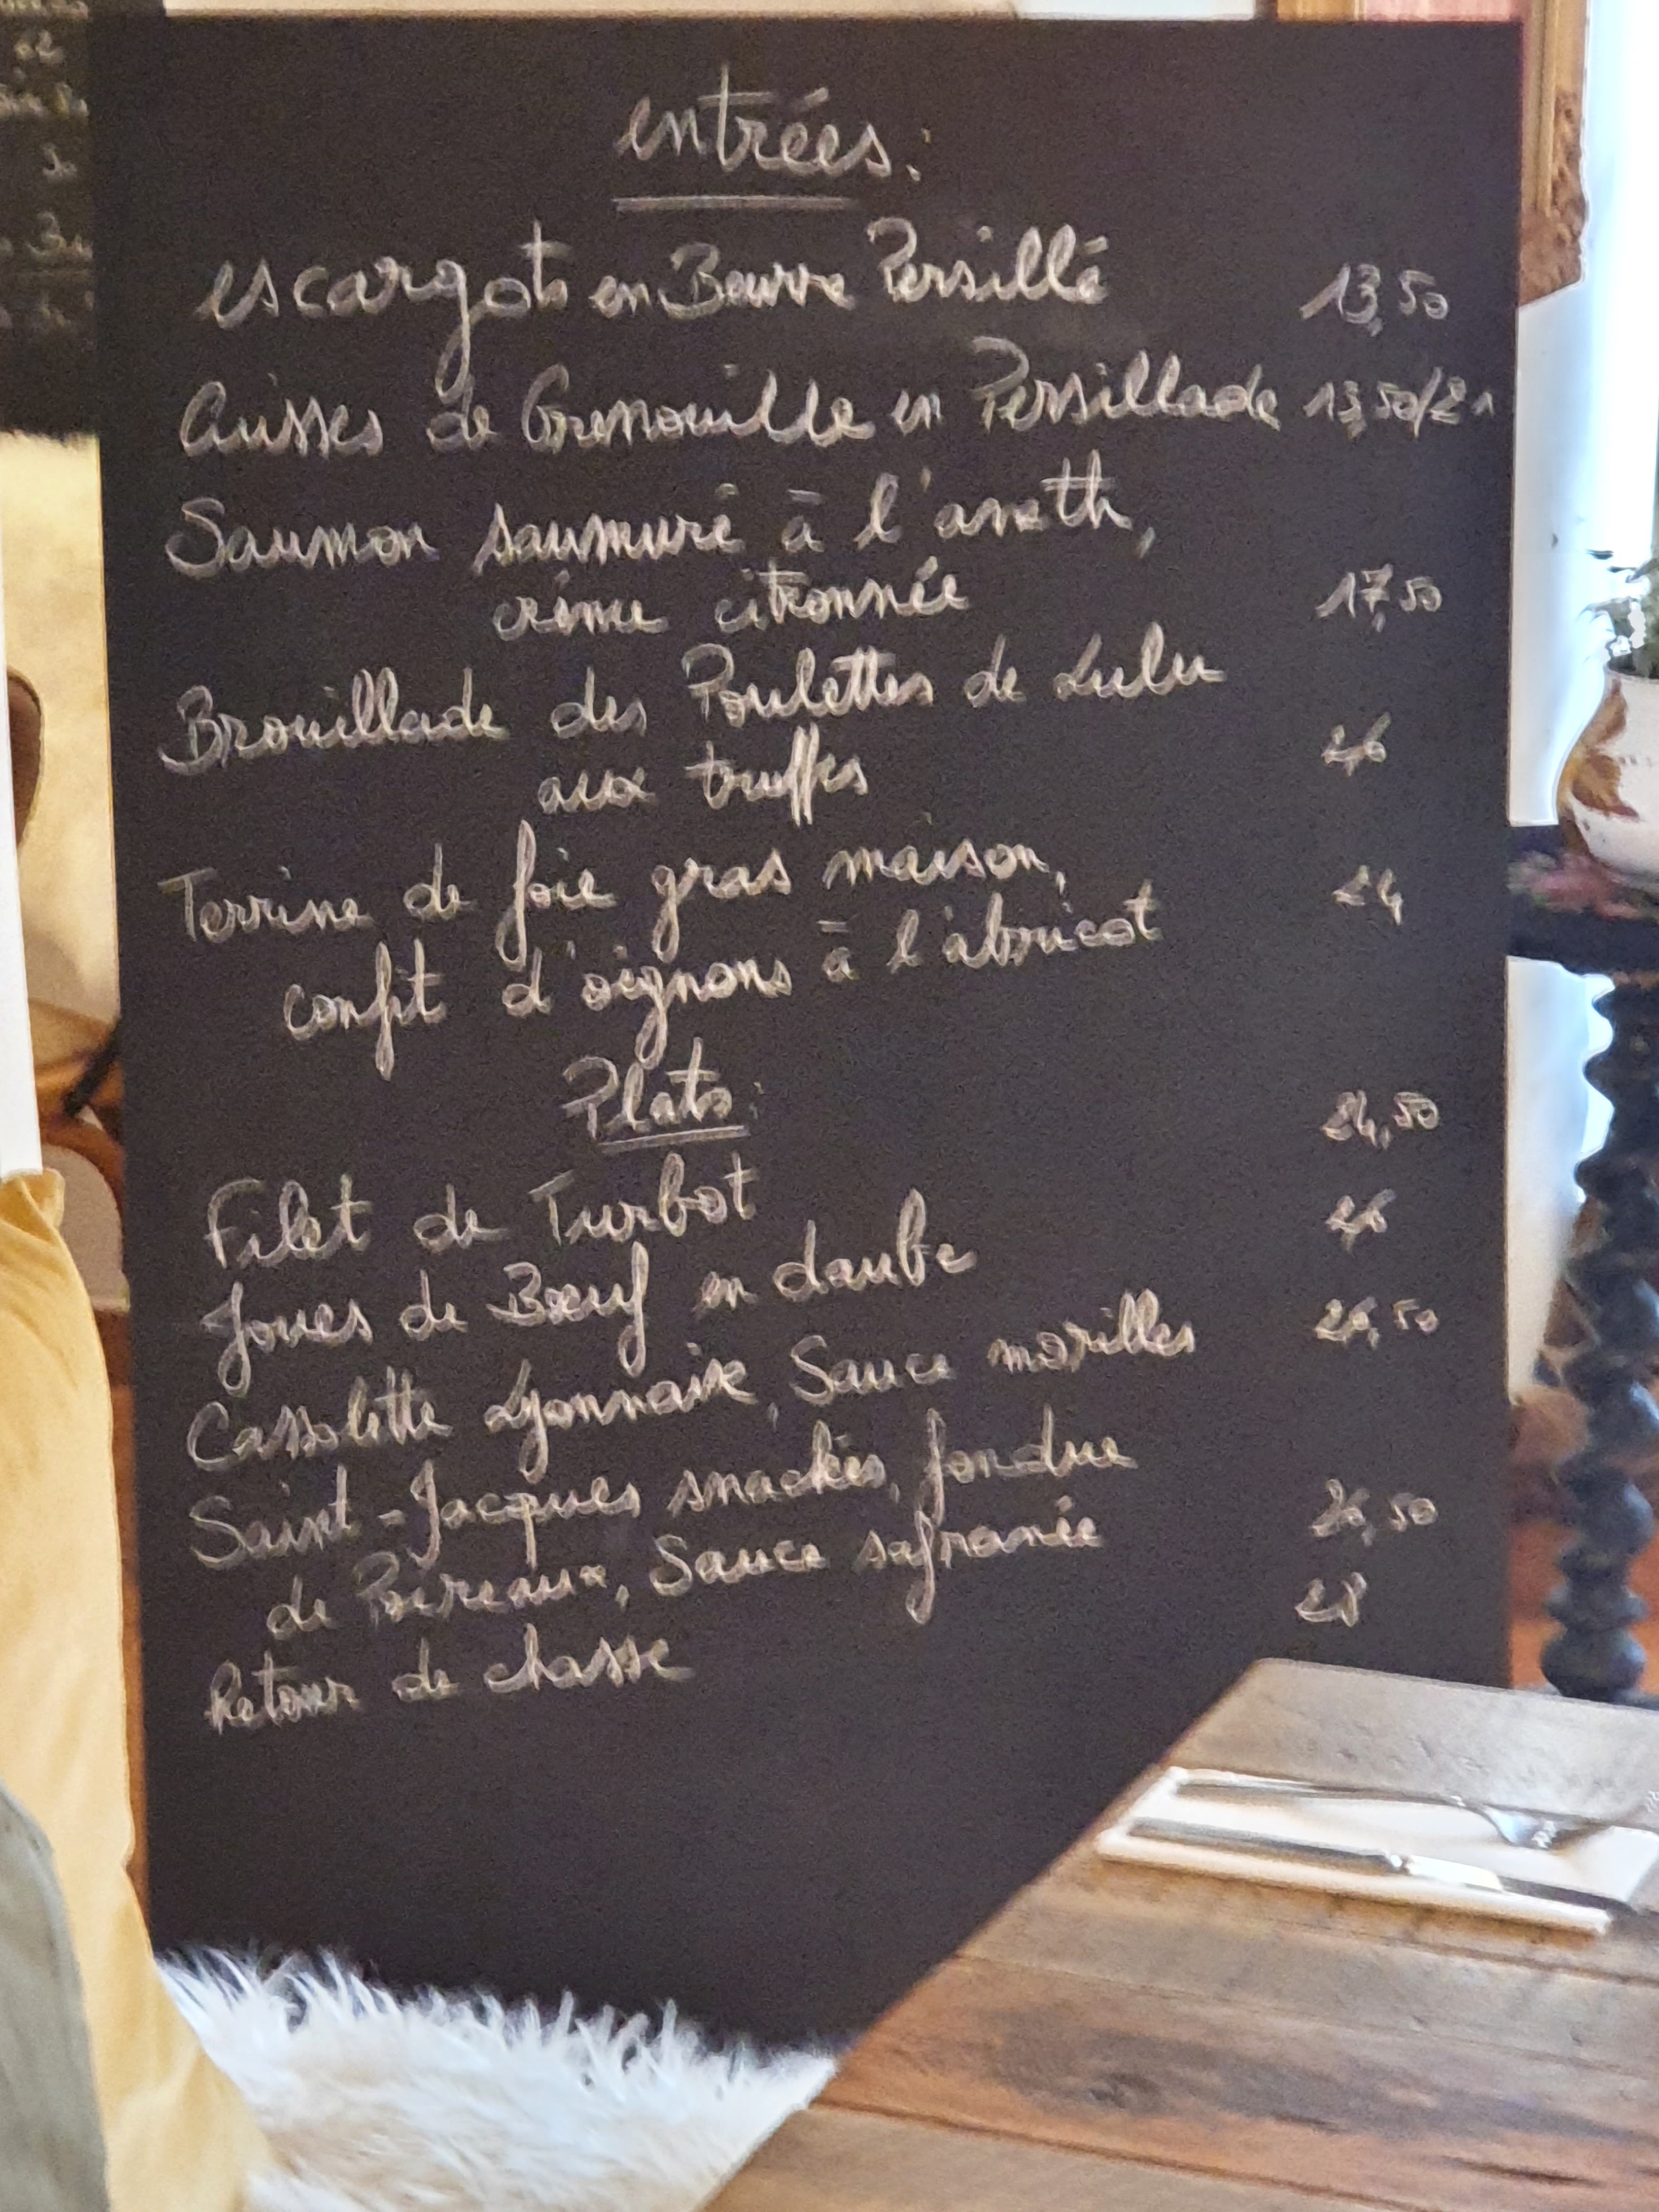 entrées:
escargots en Beurre Persillé 13,50
Cuisses de Grenouille en Persillade 13,50/21
Saumon saumuré à l'aneth,
crème citronnée 17,50
Brouillade des Poulettes de Lulu
aux truffes 26
Terrine de foie gras maison, 24
confit d'oignons à l'abricot
Plats:
Filet de Turbot 24,50
Joues de Bœuf en daube 26
Cassolette Lyonnaise, Sauce morilles 26,50
Saint-Jacques snackées, fondue
de Poireaux, Sauce safranée 26,50
Retour de chasse 28